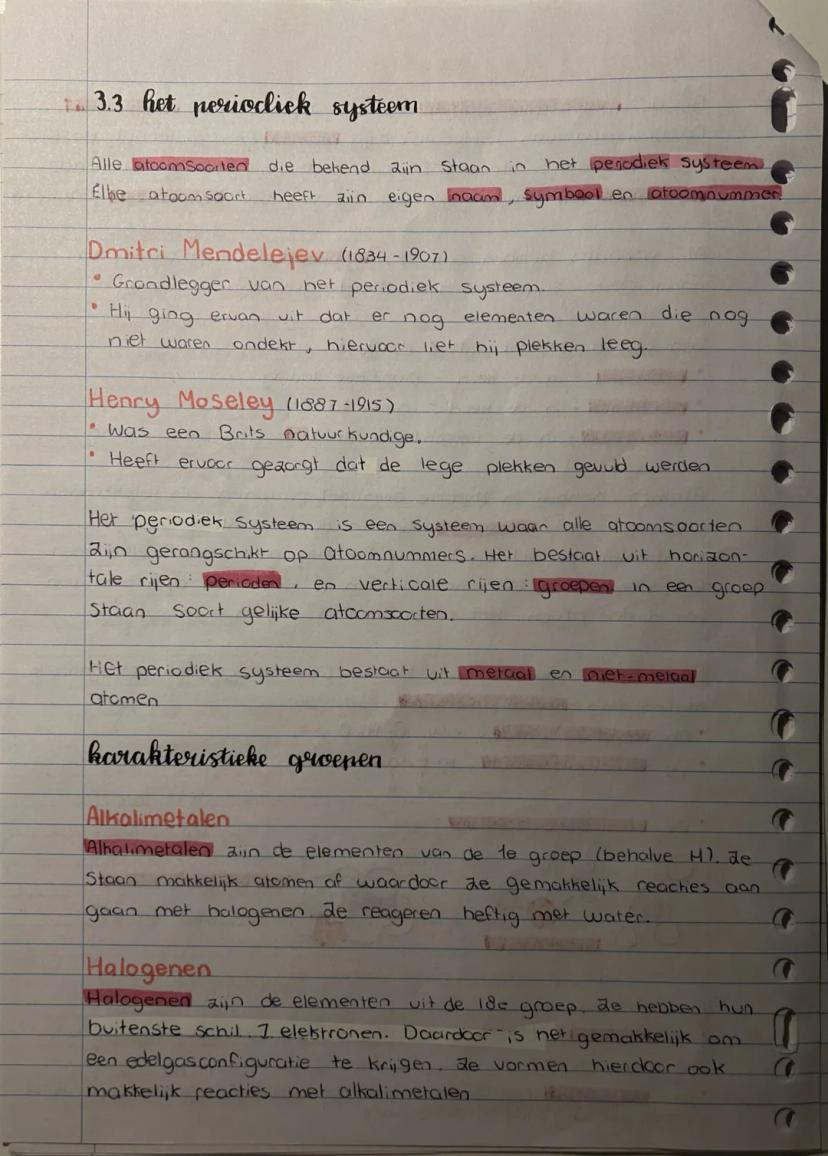 3.3 het periodiek systeem
Alle atoomsoorten die bekend zijn staan in het periodiek systeem
Elke atoomsoort heeft zijn eigen naam, symbool en atoomnummer
Dmitri Mendelejev (1834-1907)
• Grondlegger van het periodiek systeem.
• Hij ging ervan uit dat er nog elementen waren die nog
niet waren ondekt, hiervoor liet hij plekken leeg.
Henry Moseley (1887-1915)
• Was een Brits natuurkundige.
• Heeft ervoor gezorgt dat de lege plekken gevuld werden
Het periodiek systeem is een systeem waar alle atoomsoorten
zijn gerangschikt op atoomnummers. Het bestaat uit horizon-
tale rijen: perioden, en verticale rijen: groepen. in een groep
staan soort gelijke atoomsoorten.
Het periodiek systeem bestaat uit metaal en niet-metaal
atomen
karakteristieke groepen
Alkalimetalen
Alkalimetalen zijn de elementen van de 1e groep (behalve H). ze
staan makkelijk atomen af waardoor ze gemakkelijk reacties aan
gaan met halogenen. ze reageren heftig met water.
Halogenen
Halogenen zijn de elementen uit de 18e groep. ze hebben hun
buitenste schil 7 elektronen. Daardoor is het gemakkelijk om
een edelgasconfiguratie te krijgen. ze vormen hierdoor ook
makkelijk reacties met alkalimetalen